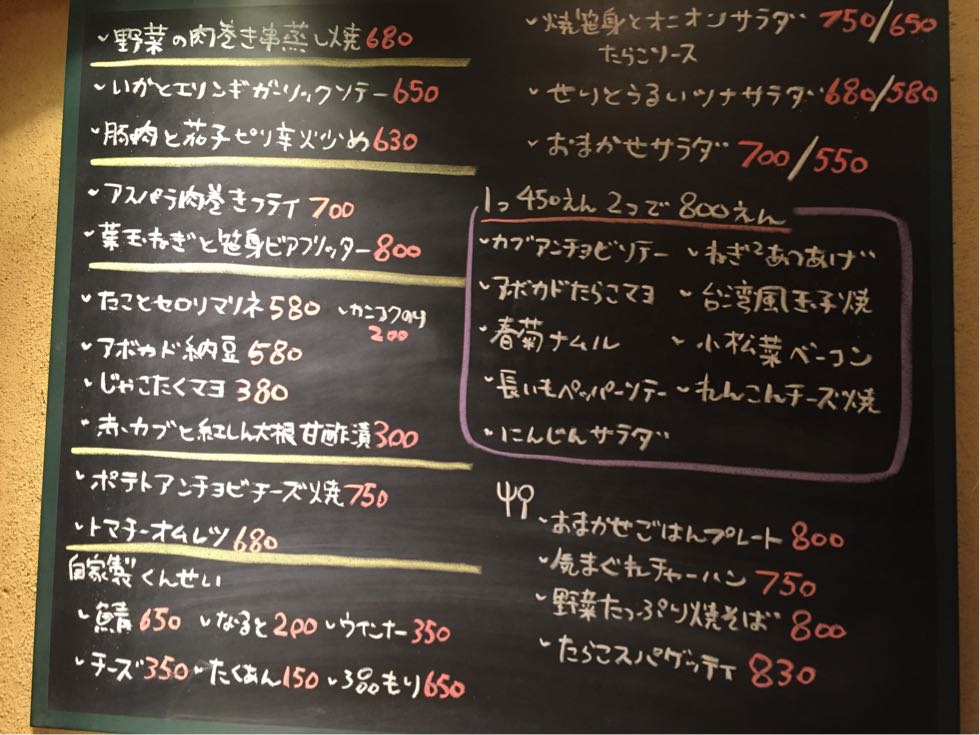 野菜の肉巻き串蒸し焼680
いかとエリンギガーリックソテー650
豚肉と茄子ピリ辛火少め630
アスパラ肉巻きフライ700
葉玉ねぎと笹身ビアフリッター800
たことセロリマリネ580
カンコクのり
200
アボカド納豆580
じゃこたくマヨ380
赤カブと紅しん大根甘酢漬300
ポテトアンチョビチーズ焼750
トマチーオムレツ680
自家製くんせい
鯖650 なると200 ウインナー350
チーズ350 たくあん150 3品もり650
焼笹身とオニオンサラダ 750/650
たらこソース
せりとうるいツナサラダ680/580
おまかせサラダ 700/550
1っ450えん2っで800えん
カブアンチョビソテー ねぎ2あつあげ
アボカドたらこマヨ 台湾風玉子焼
春菊ナムル 小松菜ベーコン
長いもペッパーソテー れんこんチーズ焼
にんじんサラダ
おまかせごはんプレート 800
気まぐれチャーハン 750
野菜たっぷり焼そば 800
たらこスパゲッティ 830